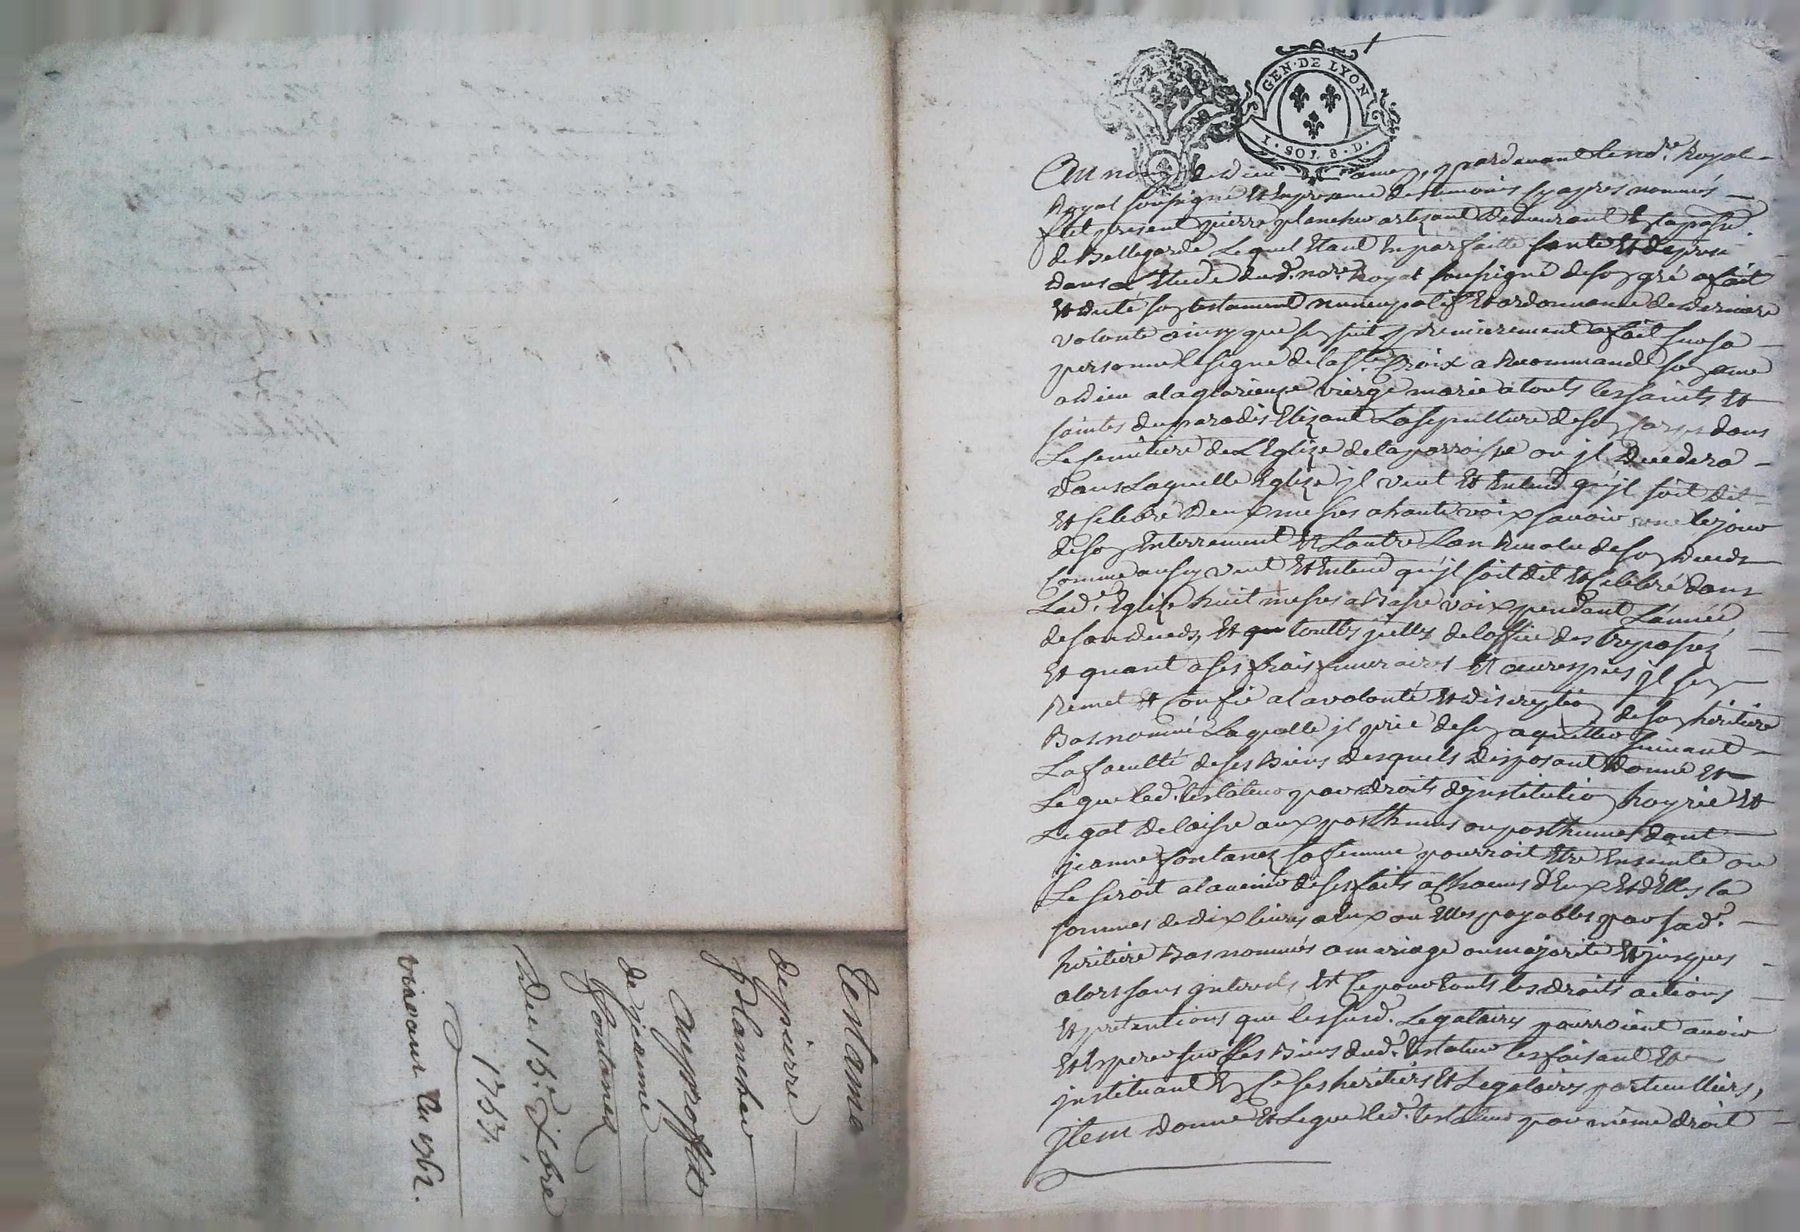 GEN·DE LYON
1·SOL 8·D.
Au nom de dieu amen, pardevant le no.re Royal
Royal soussigné et En presence des temoins cy apres nommés
fut present pierre plancher artizant demeurant En la par.se
de Bellegarde Lequel Etant En parfaitte santé Et
dans L'Etude dud. no.re Royal soussigné de son gré a fait
Et dicté son testament nuncupatif Et ordonnance de derniere
volonté ainsy que sensuit premierement a fait sur sa
personne le signe de la s.te Croix a Recommandé son ame
a dieu a la glorieuse vierge marie a touts les saints Et
saintes du paradis Elizant La sepulture de son corps dans
Le semitiere de L'Eglize de la parroisse ou jl decedera
dans Laquelle Eglize jl veut Et Entend qu'jl soit dit
Et celebré deux messes a haute voix savoir une le jour
de son Enterrement Et L'autre L'an Revolu de son deceds
Comme aussy veut Et Entend qu'jl soit dit Et celebré dans
Lad.e Eglise huit messes a Basse voix pendant L'année
de son deceds Et touttes jcelles de l'office des treposez
Et quant a ses frais funeraires Et oeuvres pies jl s'en
Remet Et Confie a la volonté Et discreption de son heritiere
Bas nommé Laquelle jl prie de s'en aquitter suivant
La faculté de ses Biens desquels disposant donne Et
Legue led. testateur par droits d'institution hoyrie Et
Legat delaisse aux posthumes ou posthumes dont
jeanne fontanez sa femme pourroit Etre Enseinte ou
Le seroit a l'avenir de ses faits a Chacuns d'Eux Et d'Elles la
sommes de dix livres a Eux ou Elles payables par sad.e
heritiere Bas nommés a mariage ou majorité Et jusques
alors sans jnterests Et Ce pour touts les droits actions
Et pretentions que les susd. Legataires pourroient avoir
Et Esperer sur les Biens dud. testateur les faisant Et
jnstituant En Ce ses heritiers Et Legataires particulliers,
jtem donne Et Legue led. testateur par même droit
Testame
de pierre
plancher
de jeanne
fontanez
Du 15.e Xbre
1757.
vivant en 1762.